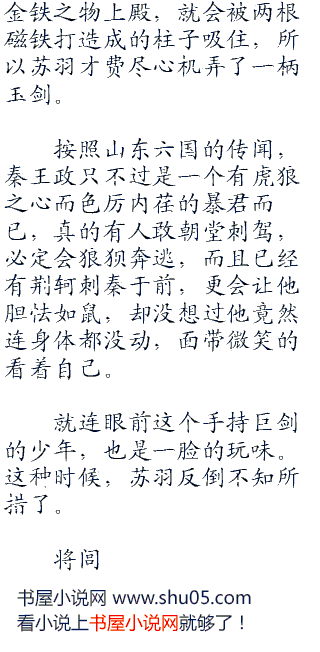 金铁之物上殿，就会被两根
磁铁打造成的柱子吸住，所
以苏羽才费尽心机弄了一柄
玉剑。
按照山东六国的传闻，
秦王政只不过是一个有虎狼
之心而色厉内荏的暴君而
已，真的有人敢朝堂刺驾，
必定会狼狈奔逃，而且已经
有荆轲刺秦于前，更会让他
胆怯如鼠，却没想过他竟然
连身体都没动，面带微笑的
看着自己。
就连眼前这个手持巨剑
的少年，也是一脸的玩味。
这种时候，苏羽反倒不知所
措了。
将闾
书屋小说网 www.shu05.com
看小说上书屋小说网就够了！